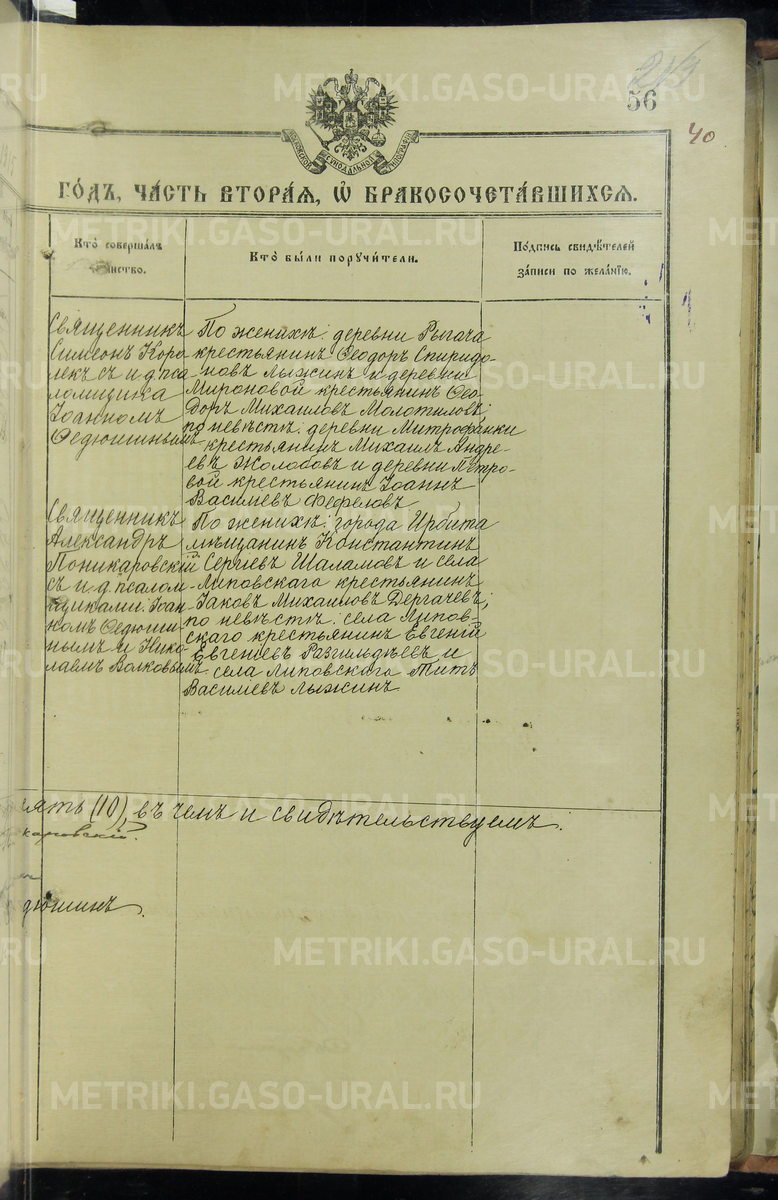 56
40
МОСКОВСКОЙ СѴНОДАЛЬНОЙ ТИПОГРАФІИ
ГО́ДЪ, ЧА́СТЬ ВТОРА́Я, Ѽ БРАКОСОЧЕТА́ВШИХСЯ.
Кто̀ совершалъ
та́инство.
Кто̀ бы́ли поручи́тели.
По́дпись свидѣ́телей
за́писи по жела́нїю.
Священникъ
Симеонъ Коро-
лекъ съ и.д. пса-
ломщика
Іоанномъ
Ѳедюшинымъ
По женихѣ: деревни Рычача
крестьянинъ Ѳеодоръ Спиридо-
новъ Лыжинъ и деревни
Мироновой крестьянинъ Ѳео-
доръ Михаиловъ Молотиловъ;
по невѣстѣ: деревни Митрофанки
крестьянинъ Михаилъ Андре-
евъ Жолобовъ и деревни Петро-
вой крестьянинъ Іоаннъ
Василіевъ Фефеловъ
Священникъ
Александръ
Поникаровскій
съ и.д. псалом-
щиками: Іоан-
номъ Ѳедюши-
нымъ и Нико-
лаемъ Волковымъ
По женихѣ: города Ирбита
мѣщанинъ Константинъ
Сергіевъ Шаламовъ и села
Липовскаго крестьянинъ
Іаковъ Михаиловъ Дергачевъ;
по невѣстѣ: села Липов-
скаго крестьянинъ Евгеній
Евгеніевъ Разгильдѣевъ и
села Липовскаго Титъ
Василіевъ Лыжинъ
сять (10), въ чемъ и свидѣтельствуемъ.
каровскій.
дюшинъ.
METRIKI.GASO-URAL.RU